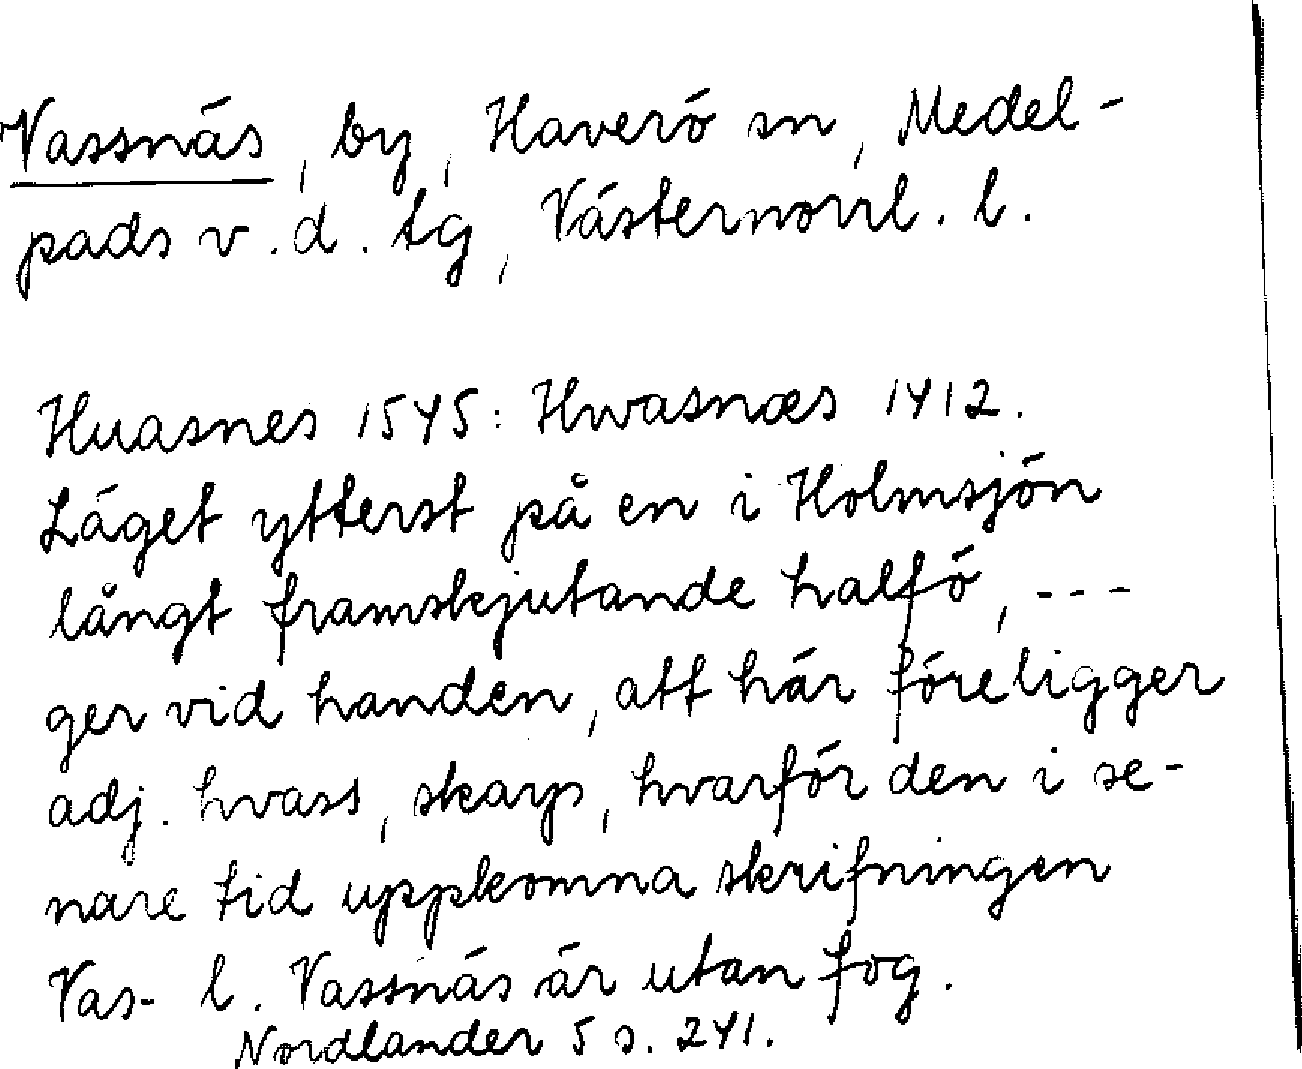 Vassnäs, by, Haverö sn, Medel-
pads v. d. tg, Västernorrl. l.
Huasnes 1545: Hwasnæs 1412.
Läget ytterst på en i Holmsjön
långt framskjutande halfö, ---
ger vid handen, att här föreligger
adj. hvass, skarp, hvarför den i se-
nare tid uppkomna skrifningen
Vas- l. Vassnäs är utan fog.
Nordlander 5 s. 241.